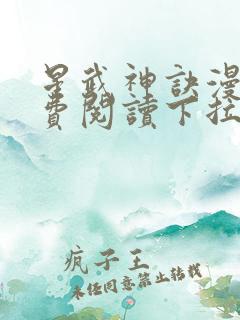 星武神訣漫
費閱讀下拉
疯子王
未经同意禁止转载